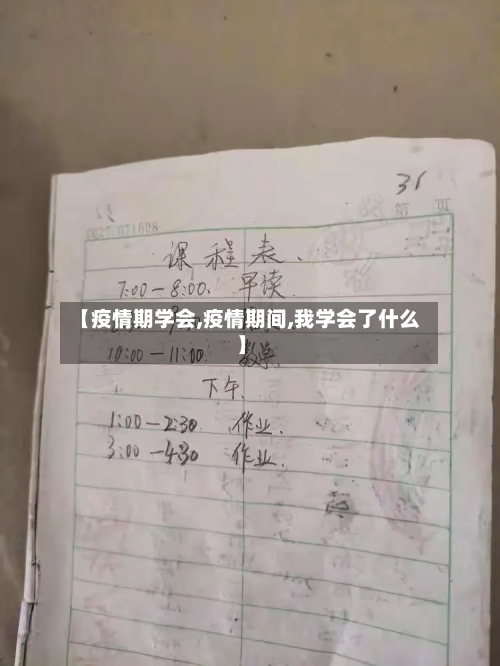 31
第 页
课程表.
7:00—8:00. 早读
【疫情期学会,疫情期间,我学会了什么
】
10:00—11:00 数学.
下午.
1:00—2:30 作业.
3:00—4:30 作业.